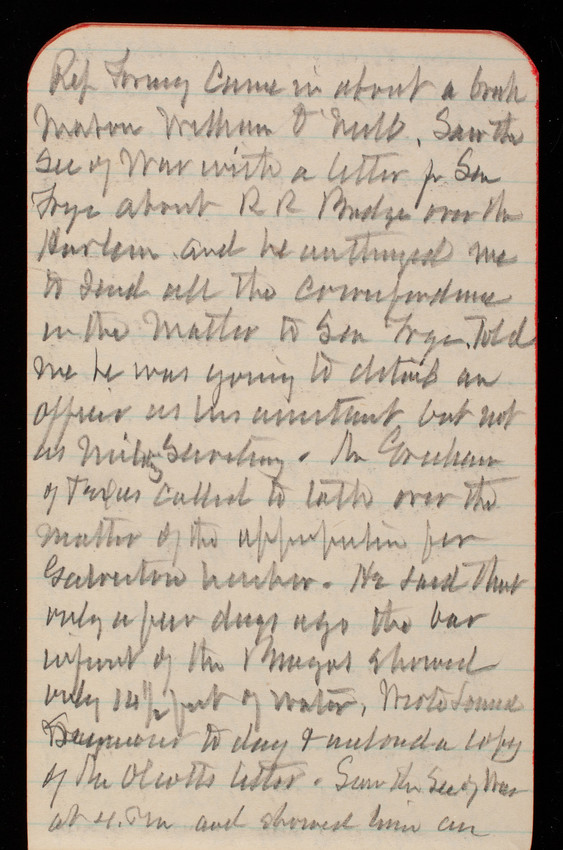 Rep Forney Came in about a
William O Neill. Saw the
Sec of War with a letter fr Sen
Frye about R R Bridge over the
Harlem and he authorized me
to send all the correspondence
in the Matter to Sen Frye. Told
me he was going to detail an
officer as his assistant but not
as Military Secretary. Mr
of Texas called to talk over the
matter of the appropriation for
Galveston harbor. He said that
only a few days ago the bar
in front of the Brazos showed
only 14½ feet of water, Wrote
to day & enclosed a copy
of the Olcotts letter. Saw the Sec of War
at 4. P.M and showed him an